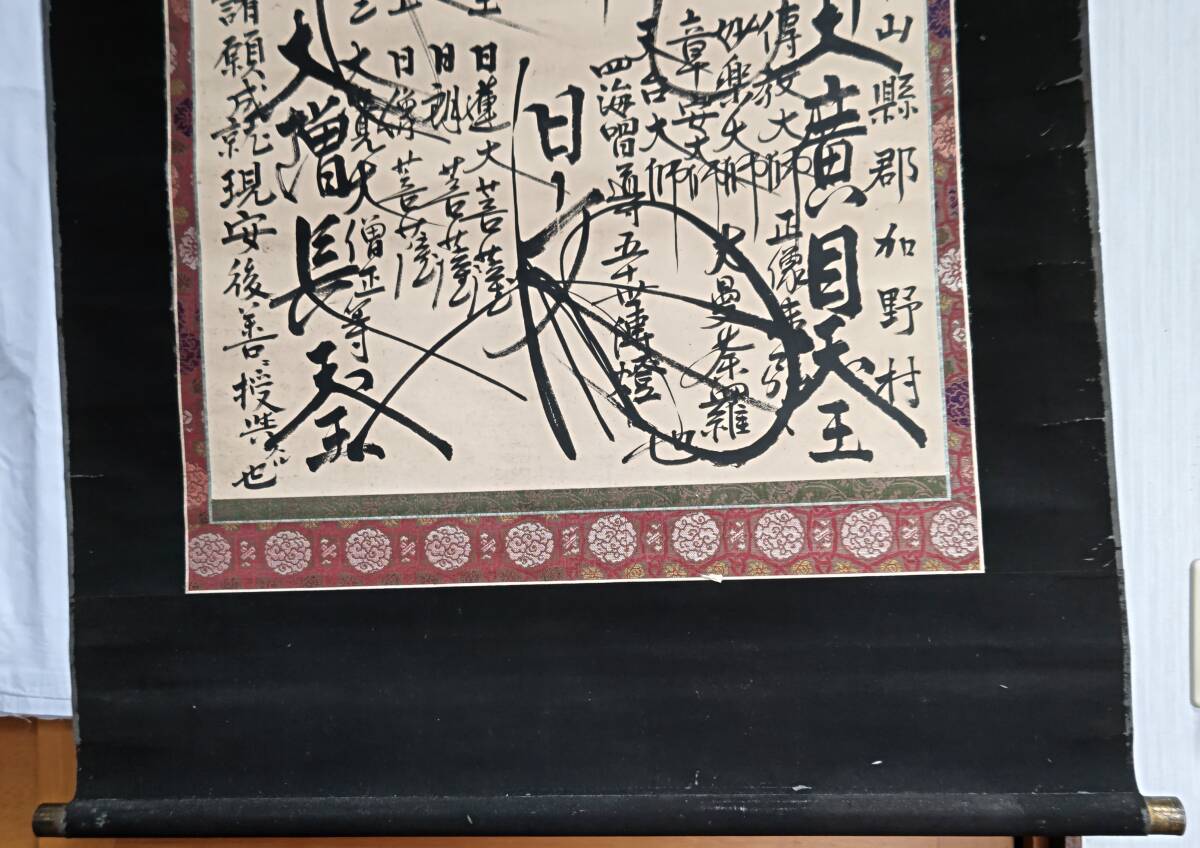 山縣郡加野村
大廣目天王
傳教大師
正像
妙樂大師
大曼荼羅
也
章安大師
天台大師
四海唱導五十世傳燈
日
日蓮大菩薩
日朗菩薩
日像菩薩
大覚大僧正等
大増長天王
諸願成就現安後善授與也